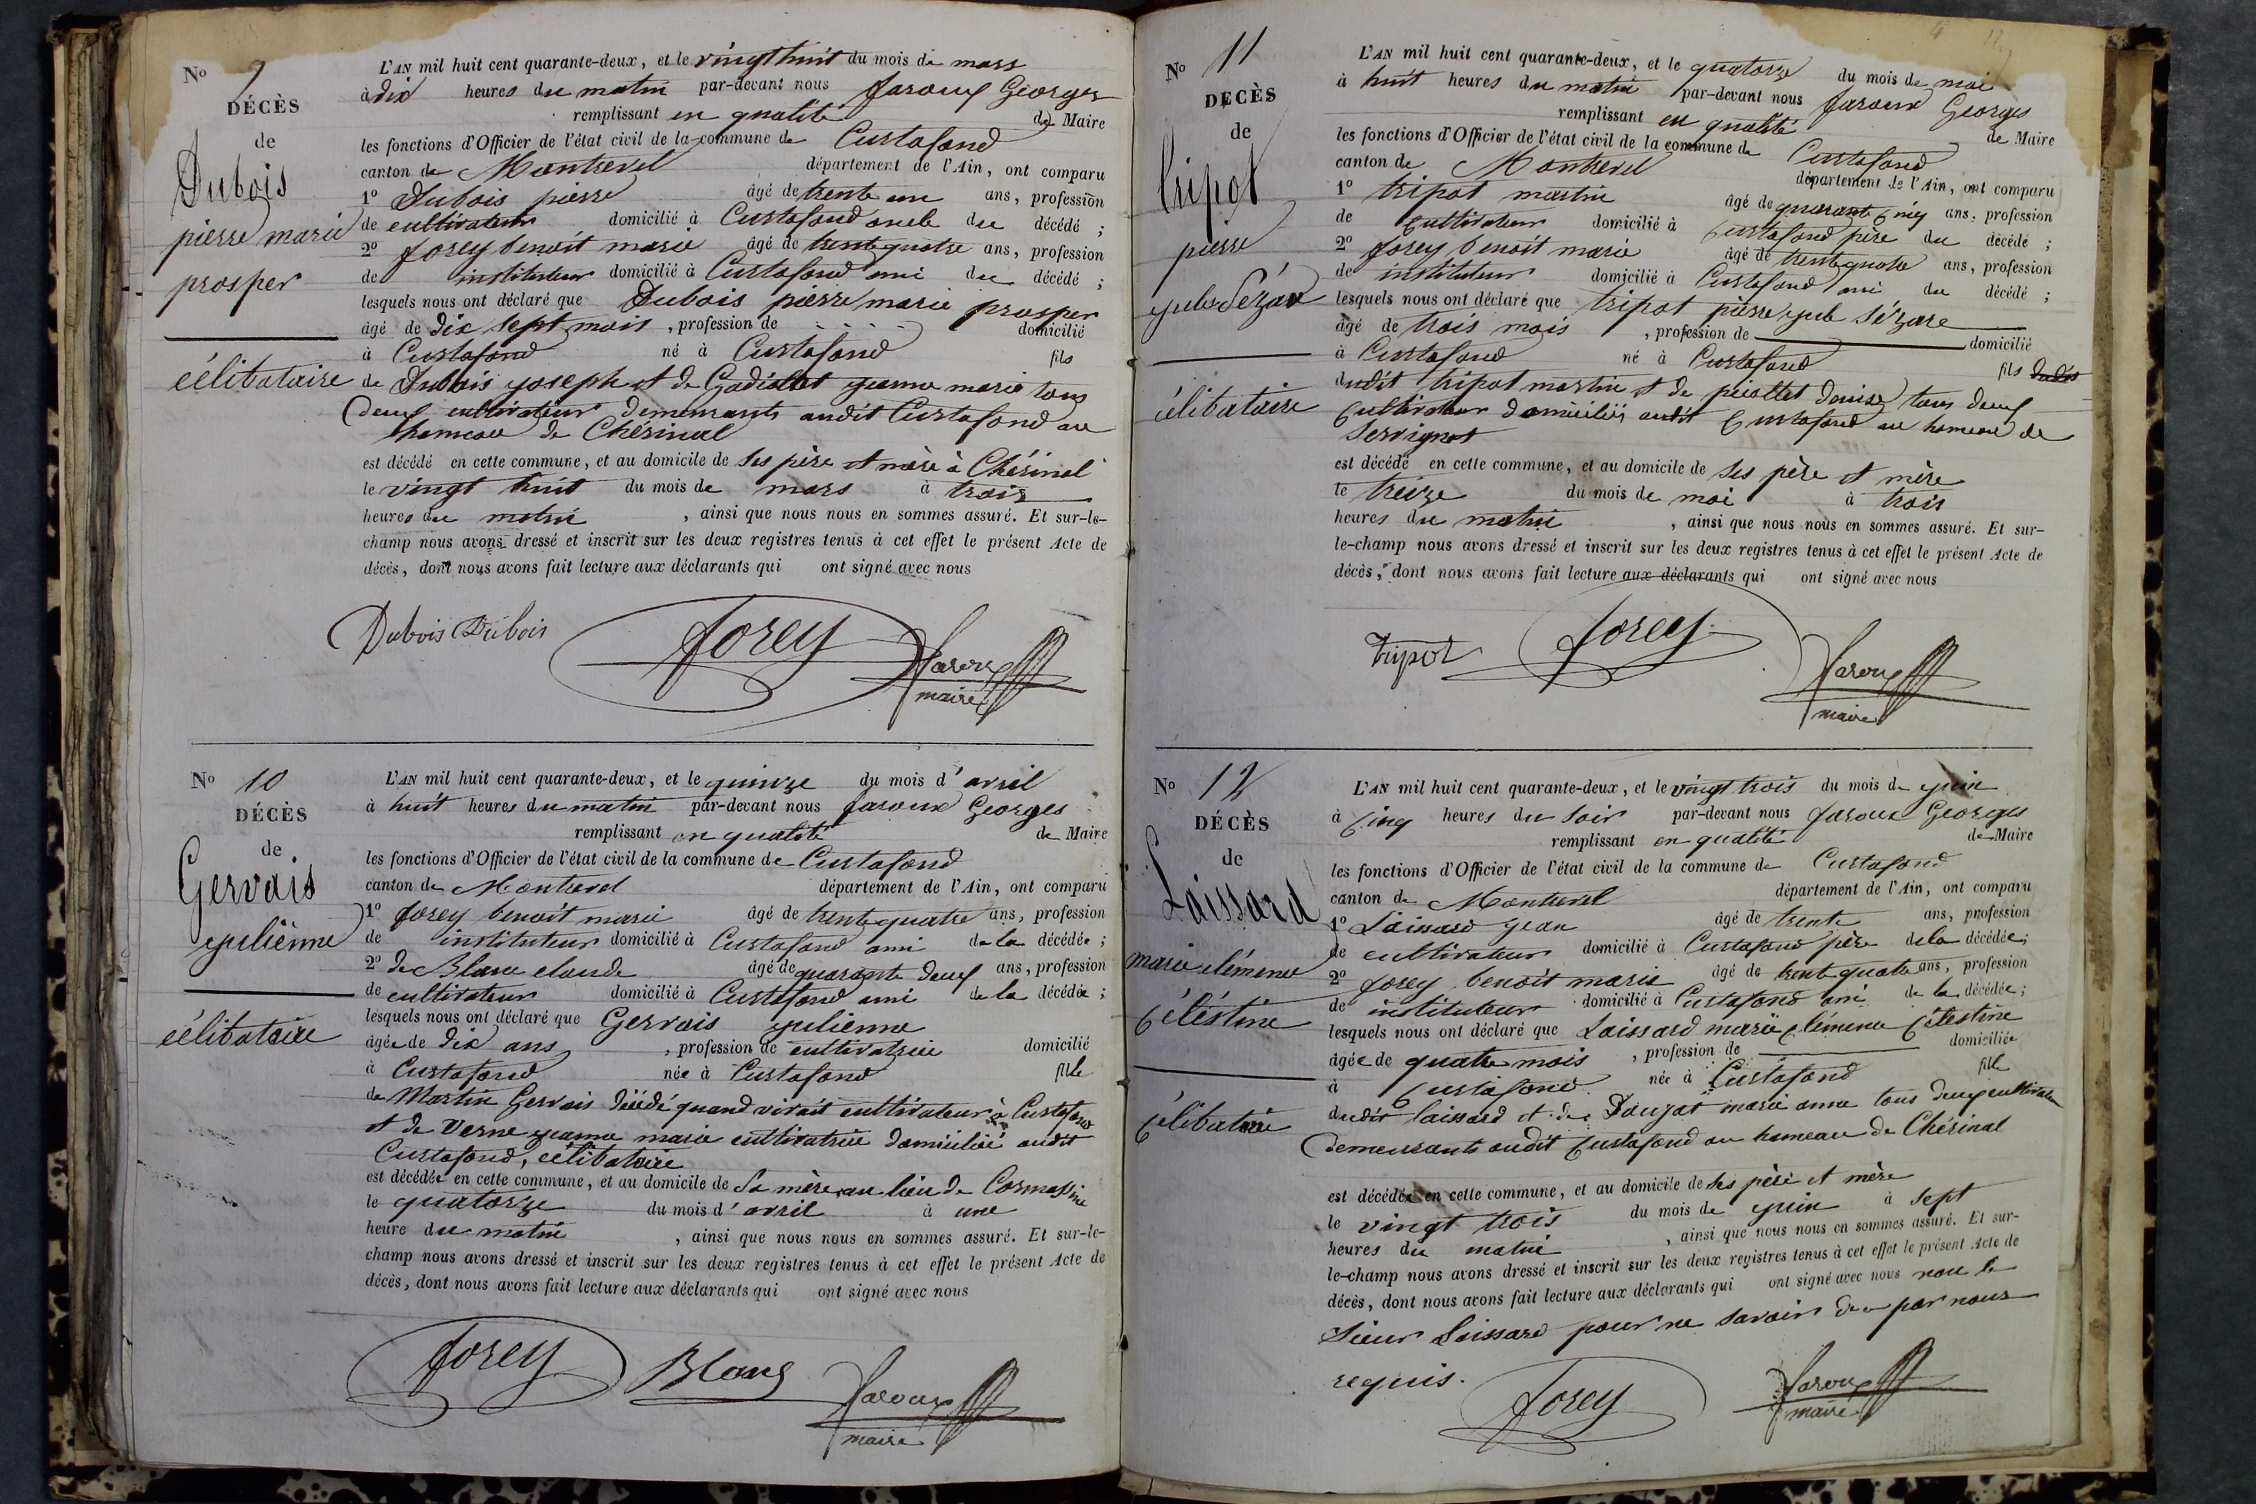 No 9
DÉCÈS
de
Dubois
pierre marie
prosper
célibataire
L'AN mil huit cent quarante-deux, et le vingt huit du mois de mars
à dix heures du matin par-devant nous faroux Georges
remplissant en qualité de Maire
les fonctions d'Officier de l'état civil de la commune de Curtafond
canton de Montrevel département de l'Ain, ont comparu
1º Dubois pierre âgé de trente un ans, profession
de cultivateur domicilié à Curtafond oncle du décédé ;
2º forey benoît marie âgé de trente quatre ans, profession
de instituteur domicilié à Curtafond ami du décédé ;
lesquels nous ont déclaré que Dubois pierre marie prosper
âgé de dix sept mois , profession de domicilié
à Curtafond né à Curtafond fils
de Dubois joseph et de Gadiolet jeanne marie tous
deux cultivateur demeurants audit Curtafond au
hameau de Chérinal
est décédé en cette commune, et au domicile de ses père et mère à Chérinal
le vingt huit du mois de mars à trois
heures du matin , ainsi que nous nous en sommes assuré. Et sur-le-
champ nous avons dressé et inscrit sur les deux registres tenus à cet effet le présent Acte de
décès, dont nous avons fait lecture aux déclarants qui ont signé avec nous
Dubois Dubois forey faroux
maire
No 10
DÉCÈS
de
Gervais
julienne
célibataire
L'AN mil huit cent quarante-deux, et le quinze du mois d'avril
à huit heures du matin par-devant nous faroux Georges
remplissant en qualité de Maire
les fonctions d'Officier de l'état civil de la commune de Curtafond
canton de Montrevel département de l'Ain, ont comparu
1º forey benoît marie âgé de trente quatre ans, profession
de instituteur domicilié à Curtafond ami de la décédée ;
2º de Blanc claude âgé de quarante deux ans, profession
de cultivateur domicilié à Curtafond ami de la décédée ;
lesquels nous ont déclaré que Gervais julienne
âgée de dix ans , profession de cultivatrice domicilié
à Curtafond née à Curtafond fille
de Martin Gervais décédé quand vivait cultivateur à Curtafond
et de Verne jeanne marie cultivatrice domiciliée audit
Curtafond, célibataire
est décédée en cette commune, et au domicile de sa mère au lieu de
le quatorze du mois d'avril à une
heure du matin , ainsi que nous nous en sommes assuré. Et sur-le-
champ nous avons dressé et inscrit sur les deux registres tenus à cet effet le présent Acte de
décès, dont nous avons fait lecture aux déclarants qui ont signé avec nous
forey Blanc faroux
maire
No 11
DECÈS
de
tripot
pierre
jules Sézar
célibataire
L'AN mil huit cent quarante-deux, et le quatorze du mois de mai
à huit heures du matin par-devant nous faroux Georges
remplissant en qualité de Maire
les fonctions d'Officier de l'état civil de la commune de Curtafond
canton de Montrevel département de l'Ain, ont comparu
1º tripot martin âgé de quarante cinq ans, profession
de cultivateur domicilié à Curtafond père du décédé ;
2º forey benoît marie âgé de trente quatre ans, profession
de instituteur domicilié à Curtafond ami du décédé ;
lesquels nous ont déclaré que tripot pierre jule Sézare
âgé de trois mois , profession de domicilié
à Curtafond né à Curtafond fils dudit
dudit tripot martin et de piollet denise tous deux
cultivateur domiciliés audit Curtafond au hameau de
Servignat
est décédé en cette commune, et au domicile de ses père et mère
le treize du mois de mai à trois
heures du matin , ainsi que nous nous en sommes assuré. Et sur-
le-champ nous avons dressé et inscrit sur les deux registres tenus à cet effet le présent Acte de
décès, dont nous avons fait lecture aux déclarants qui ont signé avec nous
tripot forey faroux
maire
No 12
DÉCÈS
de
Laissard
marie clémence
Célestine
Célibataire
L'AN mil huit cent quarante-deux, et le vingt trois du mois de juin
à cinq heures du soir par-devant nous faroux Georges
remplissant en qualité de Maire
les fonctions d'Officier de l'état civil de la commune de Curtafond
canton de Montrevel département de l'Ain, ont comparu
1º Laissard jean âgé de trente ans, profession
de cultivateur domicilié à Curtafond père de la décédée;
2º forey benoît marie âgé de trente quatre ans, profession
de instituteur domicilié à Curtafond ami de la décédée;
lesquels nous ont déclaré que Laissard marie clémence Célestine
âgée de quatre mois , profession de domiciliée
à Curtafond née à Curtafond fille
dudit laissard et de Douzat marie anne tous deux cultivateur
demeurants audit Curtafond au hameau de Chérinal
est décédée en cette commune, et au domicile de ses père et mère
le vingt trois du mois de juin à sept
heures du matin , ainsi que nous nous en sommes assuré. Et sur-
le-champ nous avons dressé et inscrit sur les deux registres tenus à cet effet le présent Acte de
décès, dont nous avons fait lecture aux déclarants qui ont signé avec nous non le
sieur Laissard pour ne savoir de ce par nous
requis.
forey faroux
maire